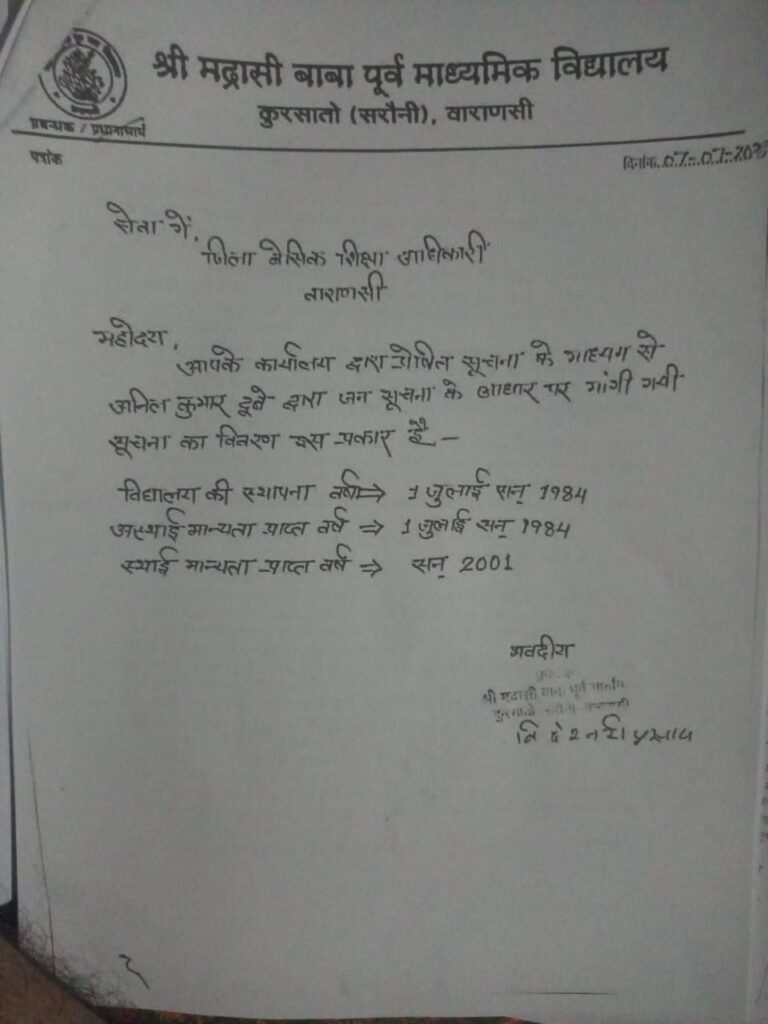 श्री मद्रासी बाबा पूर्व माध्यमिक विद्यालय
कुरसातो (सरौनी), वाराणसी
प्रबन्धक / प्रधानाचार्य
पत्रांक
दिनांक. 07-07-20
सेवा में,
जिला बेसिक शिक्षा अधिकारी
वाराणसी
महोदय,
आपके कार्यालय द्वारा प्रेषित सूचना के माध्यम से
अनिल कुमार दूबे द्वारा जन सूचना के आधार पर मांगी गयी
सूचना का विवरण इस प्रकार है –
विद्यालय की स्थापना वर्ष ⇒ 1 जुलाई सन् 1984
अस्थाई मान्यता प्राप्त वर्ष ⇒ 1 जुलाई सन् 1984
स्थाई मान्यता प्राप्त वर्ष ⇒ सन् 2001
भवदीय
श्री मद्रासी बाबा पूर्व
प्रसाद
२